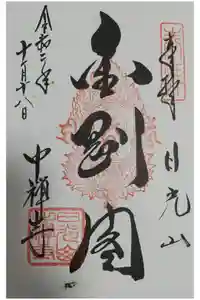 奉拝
日光山
金剛閣
令和二年
十一月十八日
中禅寺